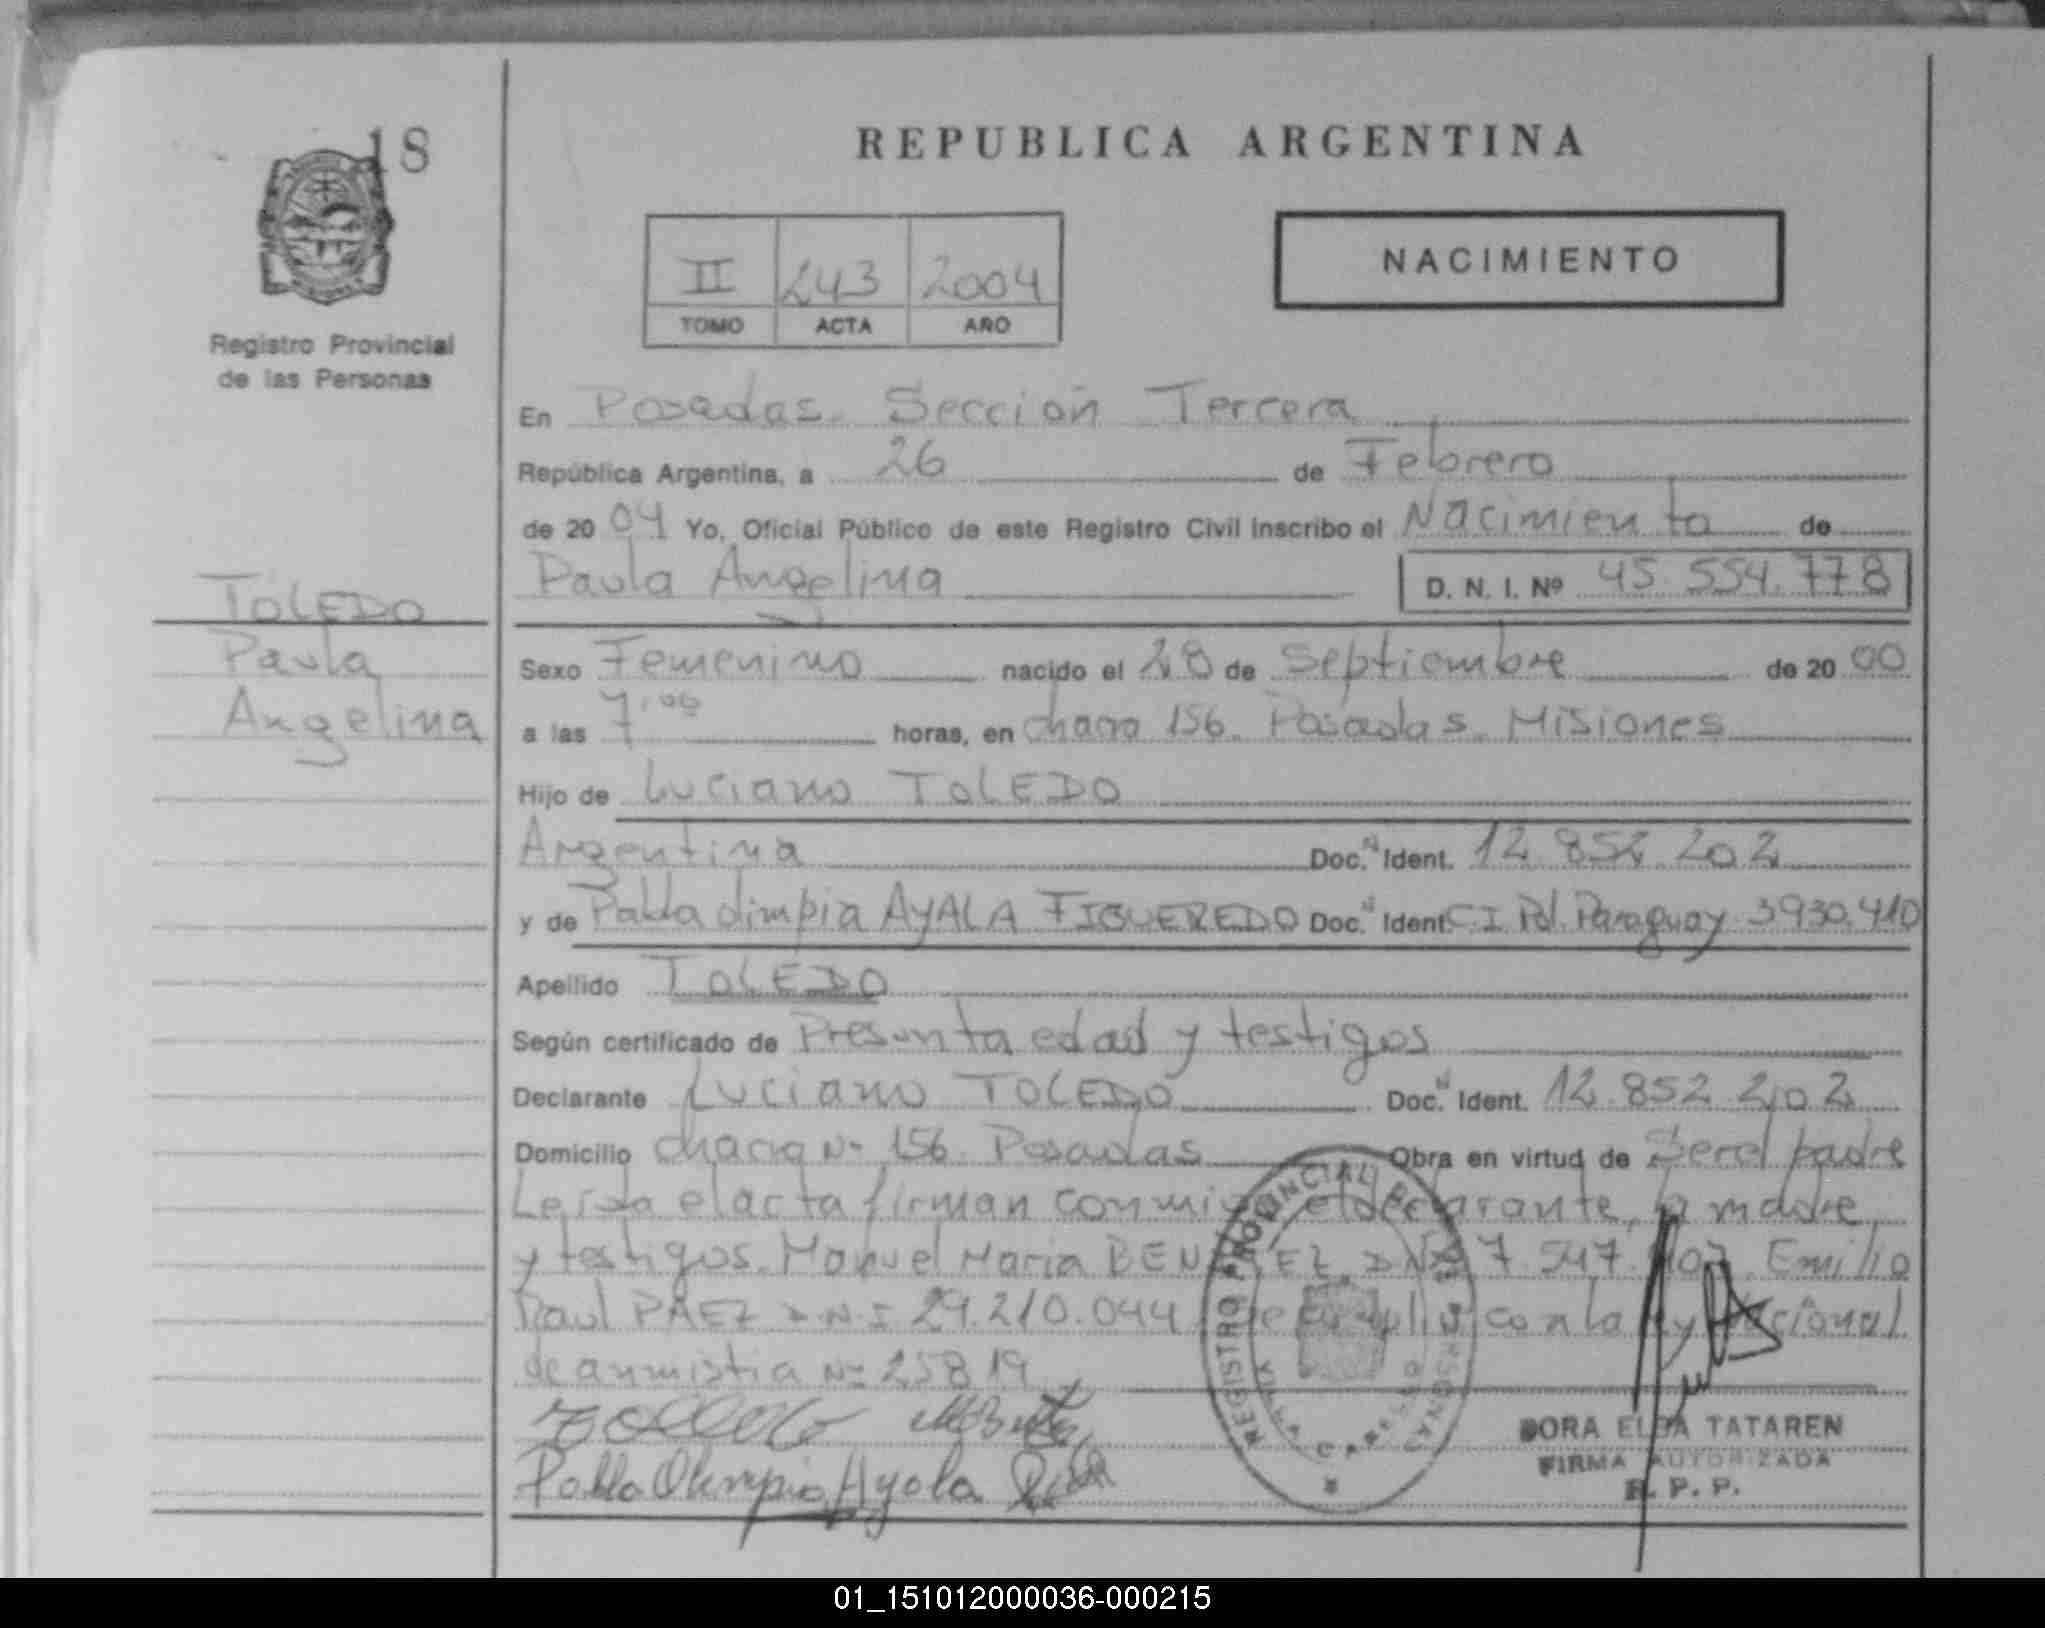 18
REPUBLICA ARGENTINA
NACIMIENTO
II 243 2004
TOMO ACTA AÑO
Registro Provincial
de las Personas
En Posadas. Sección Tercera
República Argentina, a 26 de Febrero
de 2004 Yo, Oficial Público de este Registro Civil inscribo el Nacimiento de
Paula Angelina D. N. I. Nº 45.554.778
TOLEDO
Paula
Angelina
Sexo Femenino nacido el 28 de Septiembre de 2000
a las 7,00 horas, en chacra 156. Posadas. Misiones
Hijo de Luciano TOLEDO
Argentina Doc. Ident. 12.852.202
y de Pabla Olimpia AYALA FIGUEREDO Doc. Ident. C.I. Pol. Paraguay 3930.410
Apellido TOLEDO
Según certificado de Presunta edad y testigos
Declarante Luciano TOLEDO Doc. Ident. 12.852.202
Domicilio chacra Nº 156. Posadas Obra en virtud de Ser el padre
Leída el acta firman conmigo el declarante, la madre,
y testigos. Manuel Maria BENITEZ DNI 7.547. Emilio
Raul PAEZ D.N.I 29.210.044 Se cumplió con la Ley Nacional
de anmistia Nº 25819
Pabla Olimpia Ayala
REGISTRO PROVINCIAL DE LAS PERSONAS
VILLA CABELLO
DORA ELBA TATAREN
FIRMA AUTORIZADA
R. P. P.
01_151012000036-000215